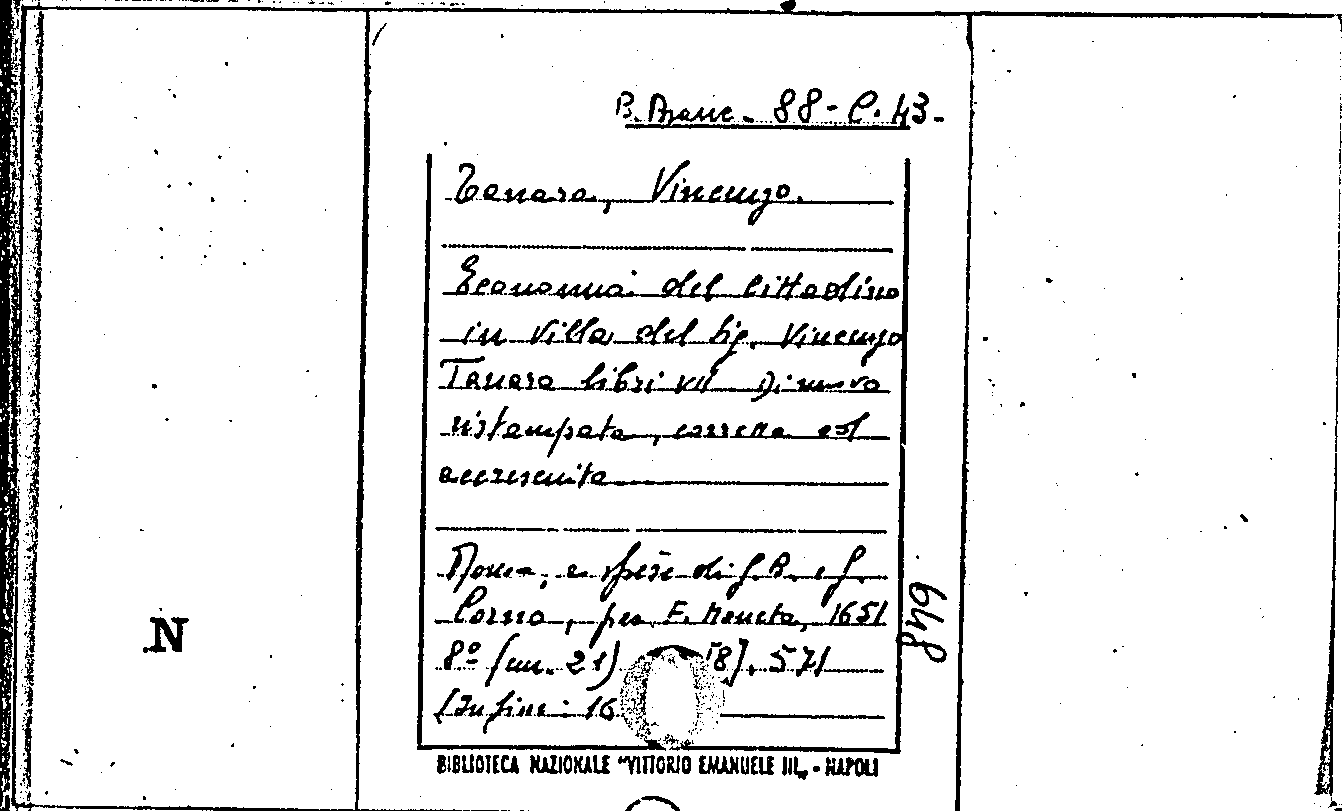 B. Branc. 88-C.43.
Tanara, Vincenzo.
Economia del Cittadino
in Villa del Sig. Vincenzo
Tanara libri VII Di nuovo
ristampata, corretta ed
accresciuta
Roma, a spese di G.B. e G.
Corvo, per F. Moneta, 1651
8º (cm. 21) [8], 571
(In fine: 16
648
N
BIBLIOTECA NAZIONALE "VITTORIO EMANUELE III„ - NAPOLI